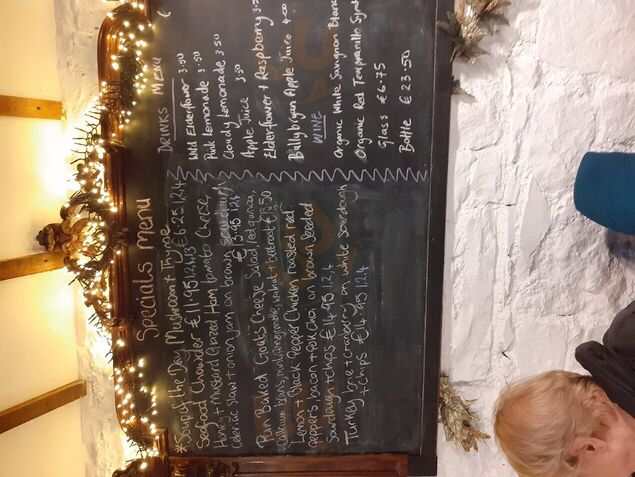 Specials Menu
*Soup of the Day Mushroom + Thyme € 6.25 1,2,4
Seafood Chowder € 11.95 1,2,4,13
Honey + Mustard Glazed Ham tomato Cheese,
Celeriac Slaw + onion jam on brown sourdough
€ 13.95 1,2,4
Pan Baked Goats Cheese Salad, red quinoa,
walnut + beetroot € 13.50
Lemon + Black Pepper Chicken roasted red
peppers bacon + on brown Seeded
Sourdough + chips € 14.95 1,2,4
Turkey, brie + cranberry on white sourdough
+ chips € 14.95 1,2,4
DRINKS MENU
Wild Elderflower 3.50
Pink Lemonade 3.50
Cloudy Lemonade 3.50
Apple Juice 3.50
Elderflower + Raspberry
Ballybryan Apple Juice 4.00
WINE
Organic White Sauvignon Blanc
Organic Red Tempranillo
Glass € 6.75
Bottle € 23.50